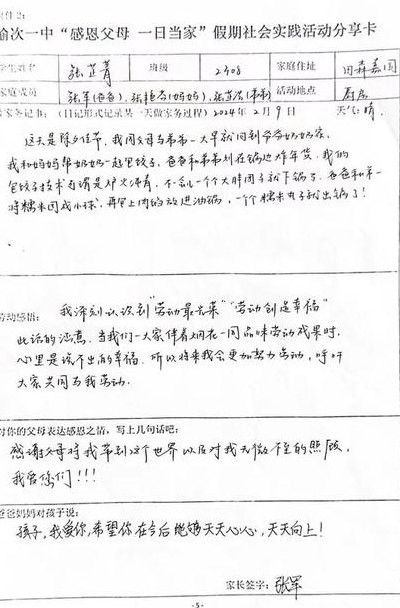 附件2:
榆次一中“感恩父母 一日当家”假期社会实践活动分享卡
学生姓名 张芷菁 班级 2408 家庭住址 田森嘉园
家庭成员 张军(爸爸), 张艳(妈妈), (弟弟) 活动地点 厨房
家务记事:(日记形式记录某一天做家务过程) 2024年2月9日 天气:晴
这天是除夕佳节,我同父母与弟弟一大早就回到爷爷奶奶家,
我和妈妈帮奶奶一起包饺子,爸爸和弟弟则在锅边炸年货,我的
包饺子技术可谓是炉火纯青,不一会儿一个个大胖团子就下锅了,爸爸和弟一
将糯米团成小球,再包上肉的放进油锅,一个糯米丸子就出锅了!
劳动感悟: 我深刻认识到“劳动最光荣”“劳动创造幸福”
此话的涵意,当我们一大家伴着烟花一同品味劳动成果时,
心里是说不出的幸福,所以将来我会更加努力劳动,呼吁
大家共同与我劳动.
对你的父母表达感恩之情,写上几句话吧:
感谢父母将我带到这个世界以及对我无微不至的照顾,
我爱你们!!!
爸爸妈妈对孩子说:
孩子,我爱你,希望你在今后能够天天开心,天天向上!
家长签字: 张军
-5-